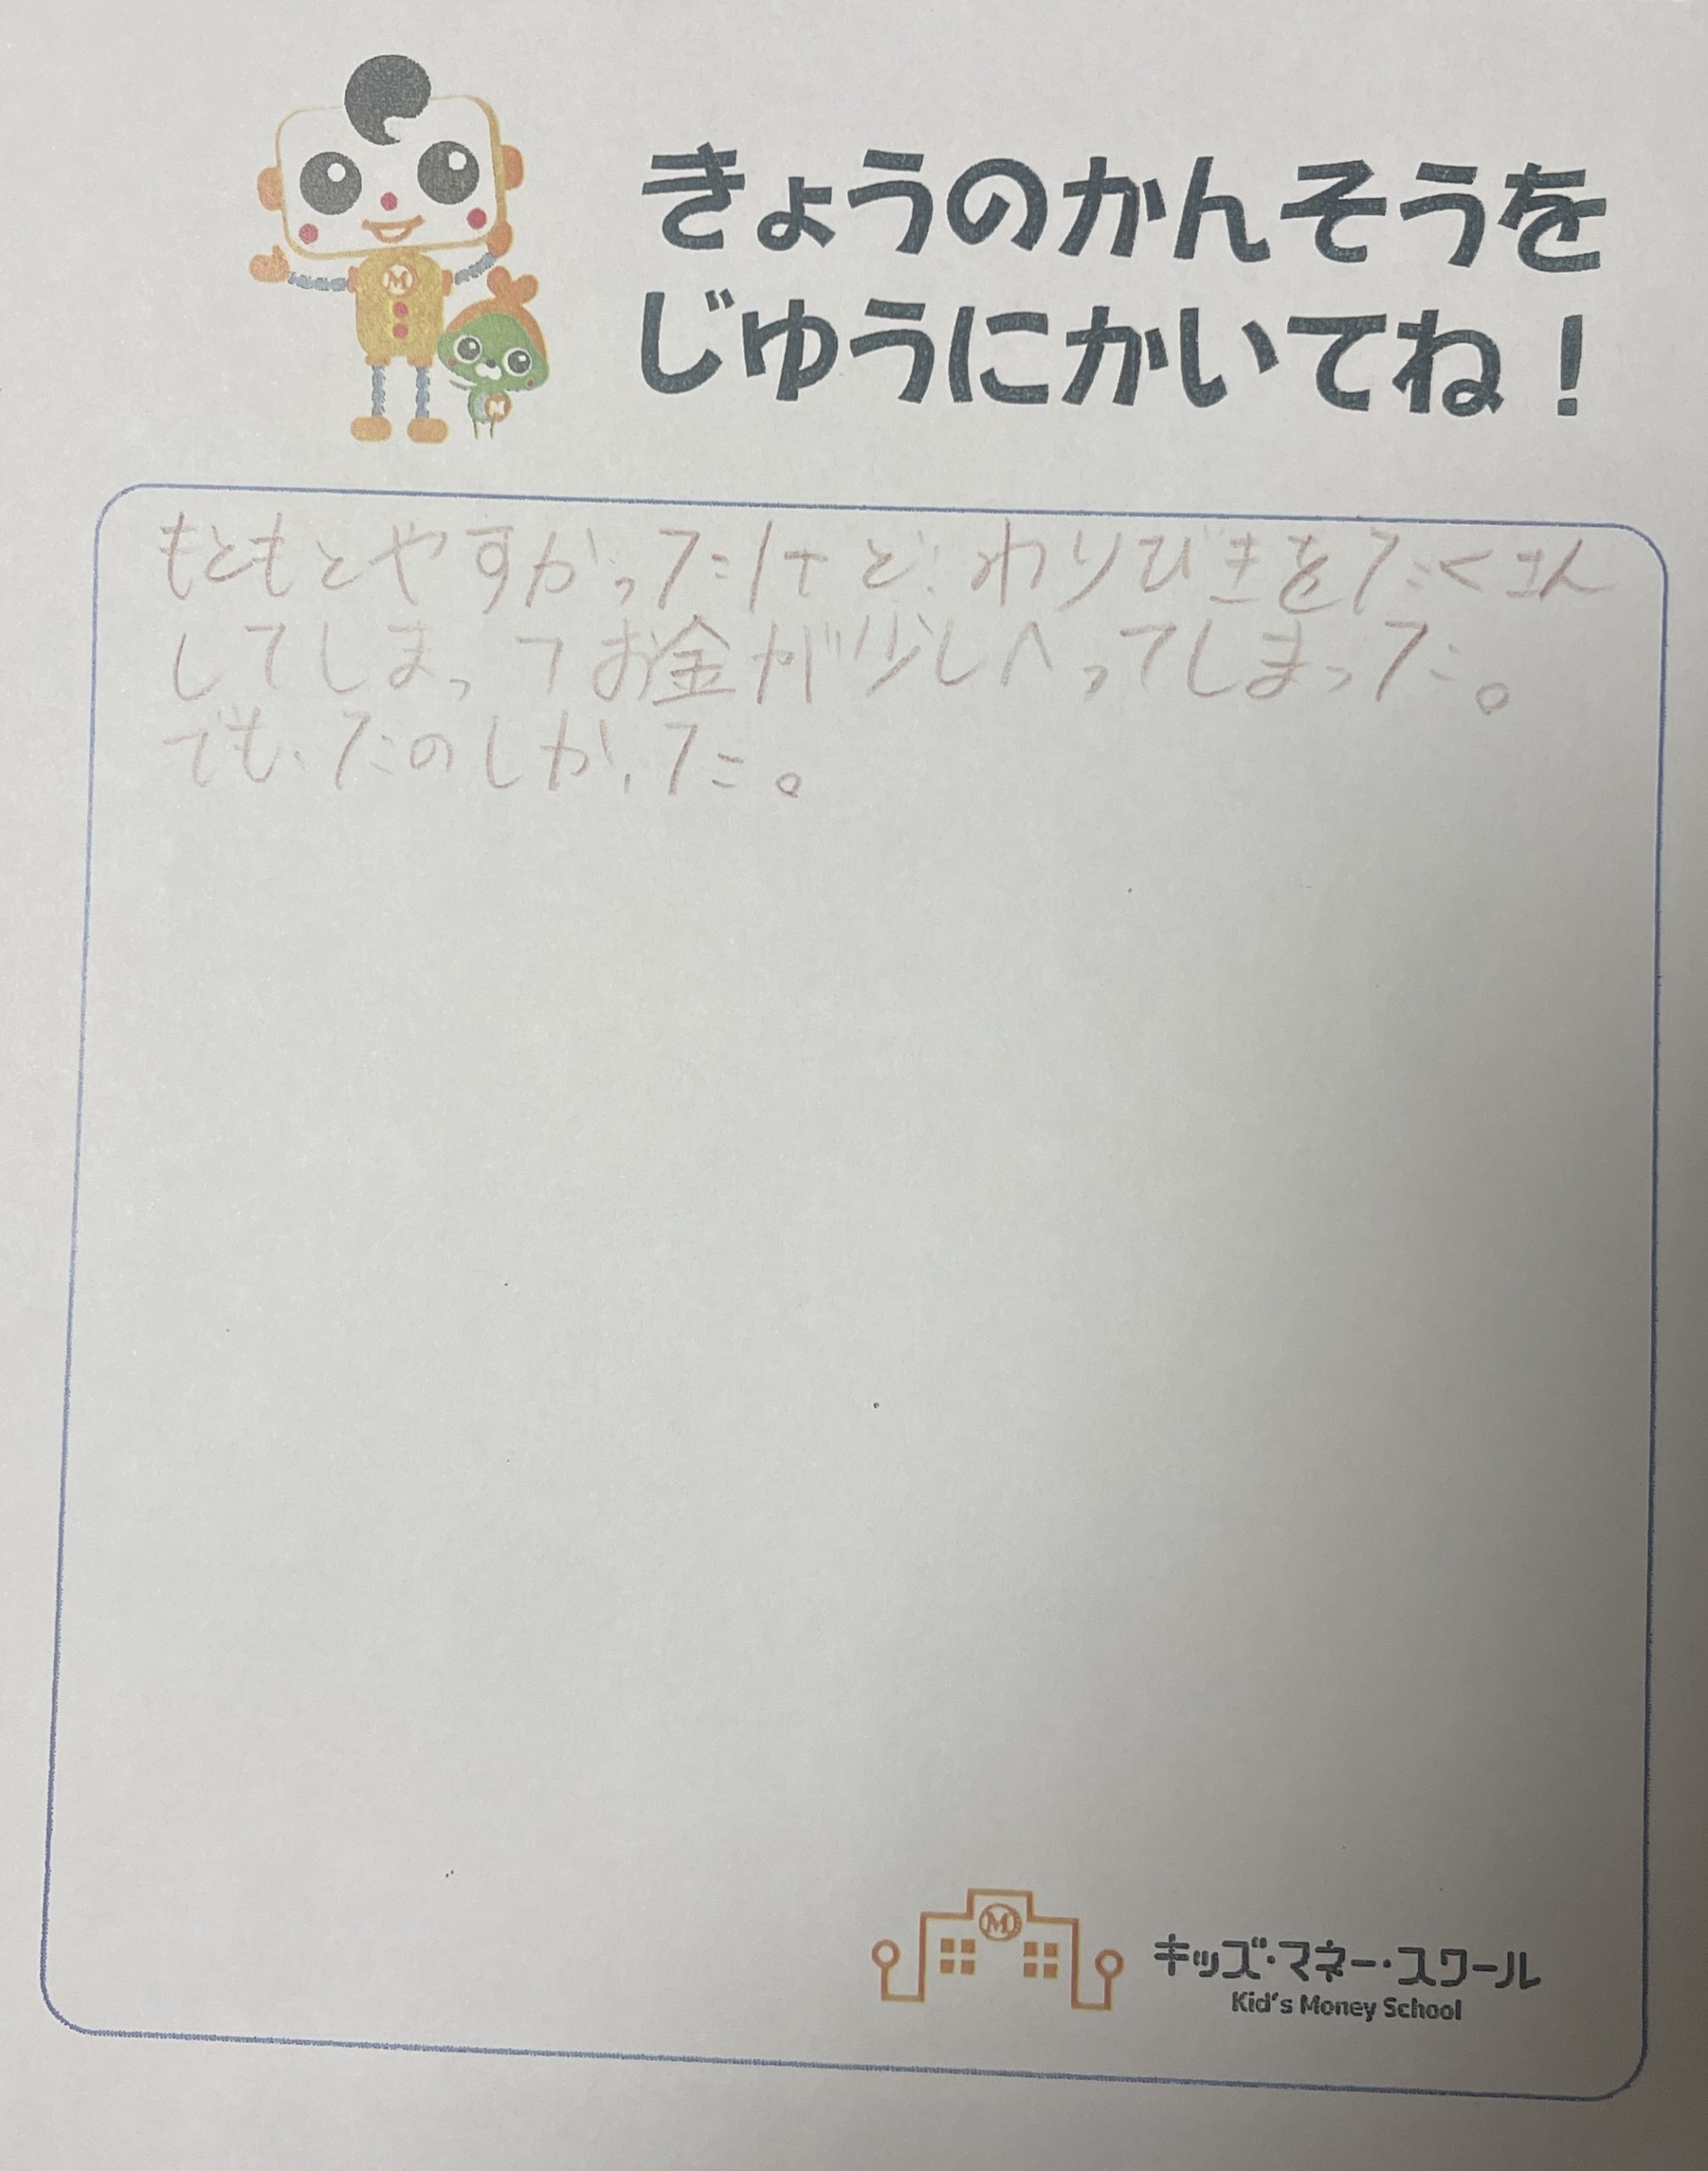 きょうのかんそうを
じゆうにかいてね！
もともとやすかったけど、わりびきをたくさん
してしまってお金が少しへってしまった。
でも、たのしかった。
M
M
M
キッズ・マネー・スクール
Kid's Money School